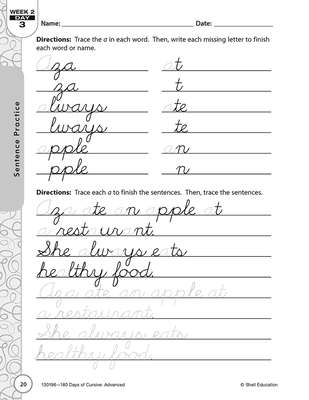 WEEK 2
DAY
3
Name: Date:
Directions: Trace the a in each word. Then, write each missing letter to finish
each word or name.
Aza at
za t
always ate
lways te
apple an
pple n
Sentence Practice
Directions: Trace each a to finish the sentences. Then, trace the sentences.
Aza ate an apple at
a restaurant.
She always eats
healthy food.
Aza ate an apple at
a restaurant.
She always eats
healthy food.
20
130196—180 Days of Cursive: Advanced
© Shell Education